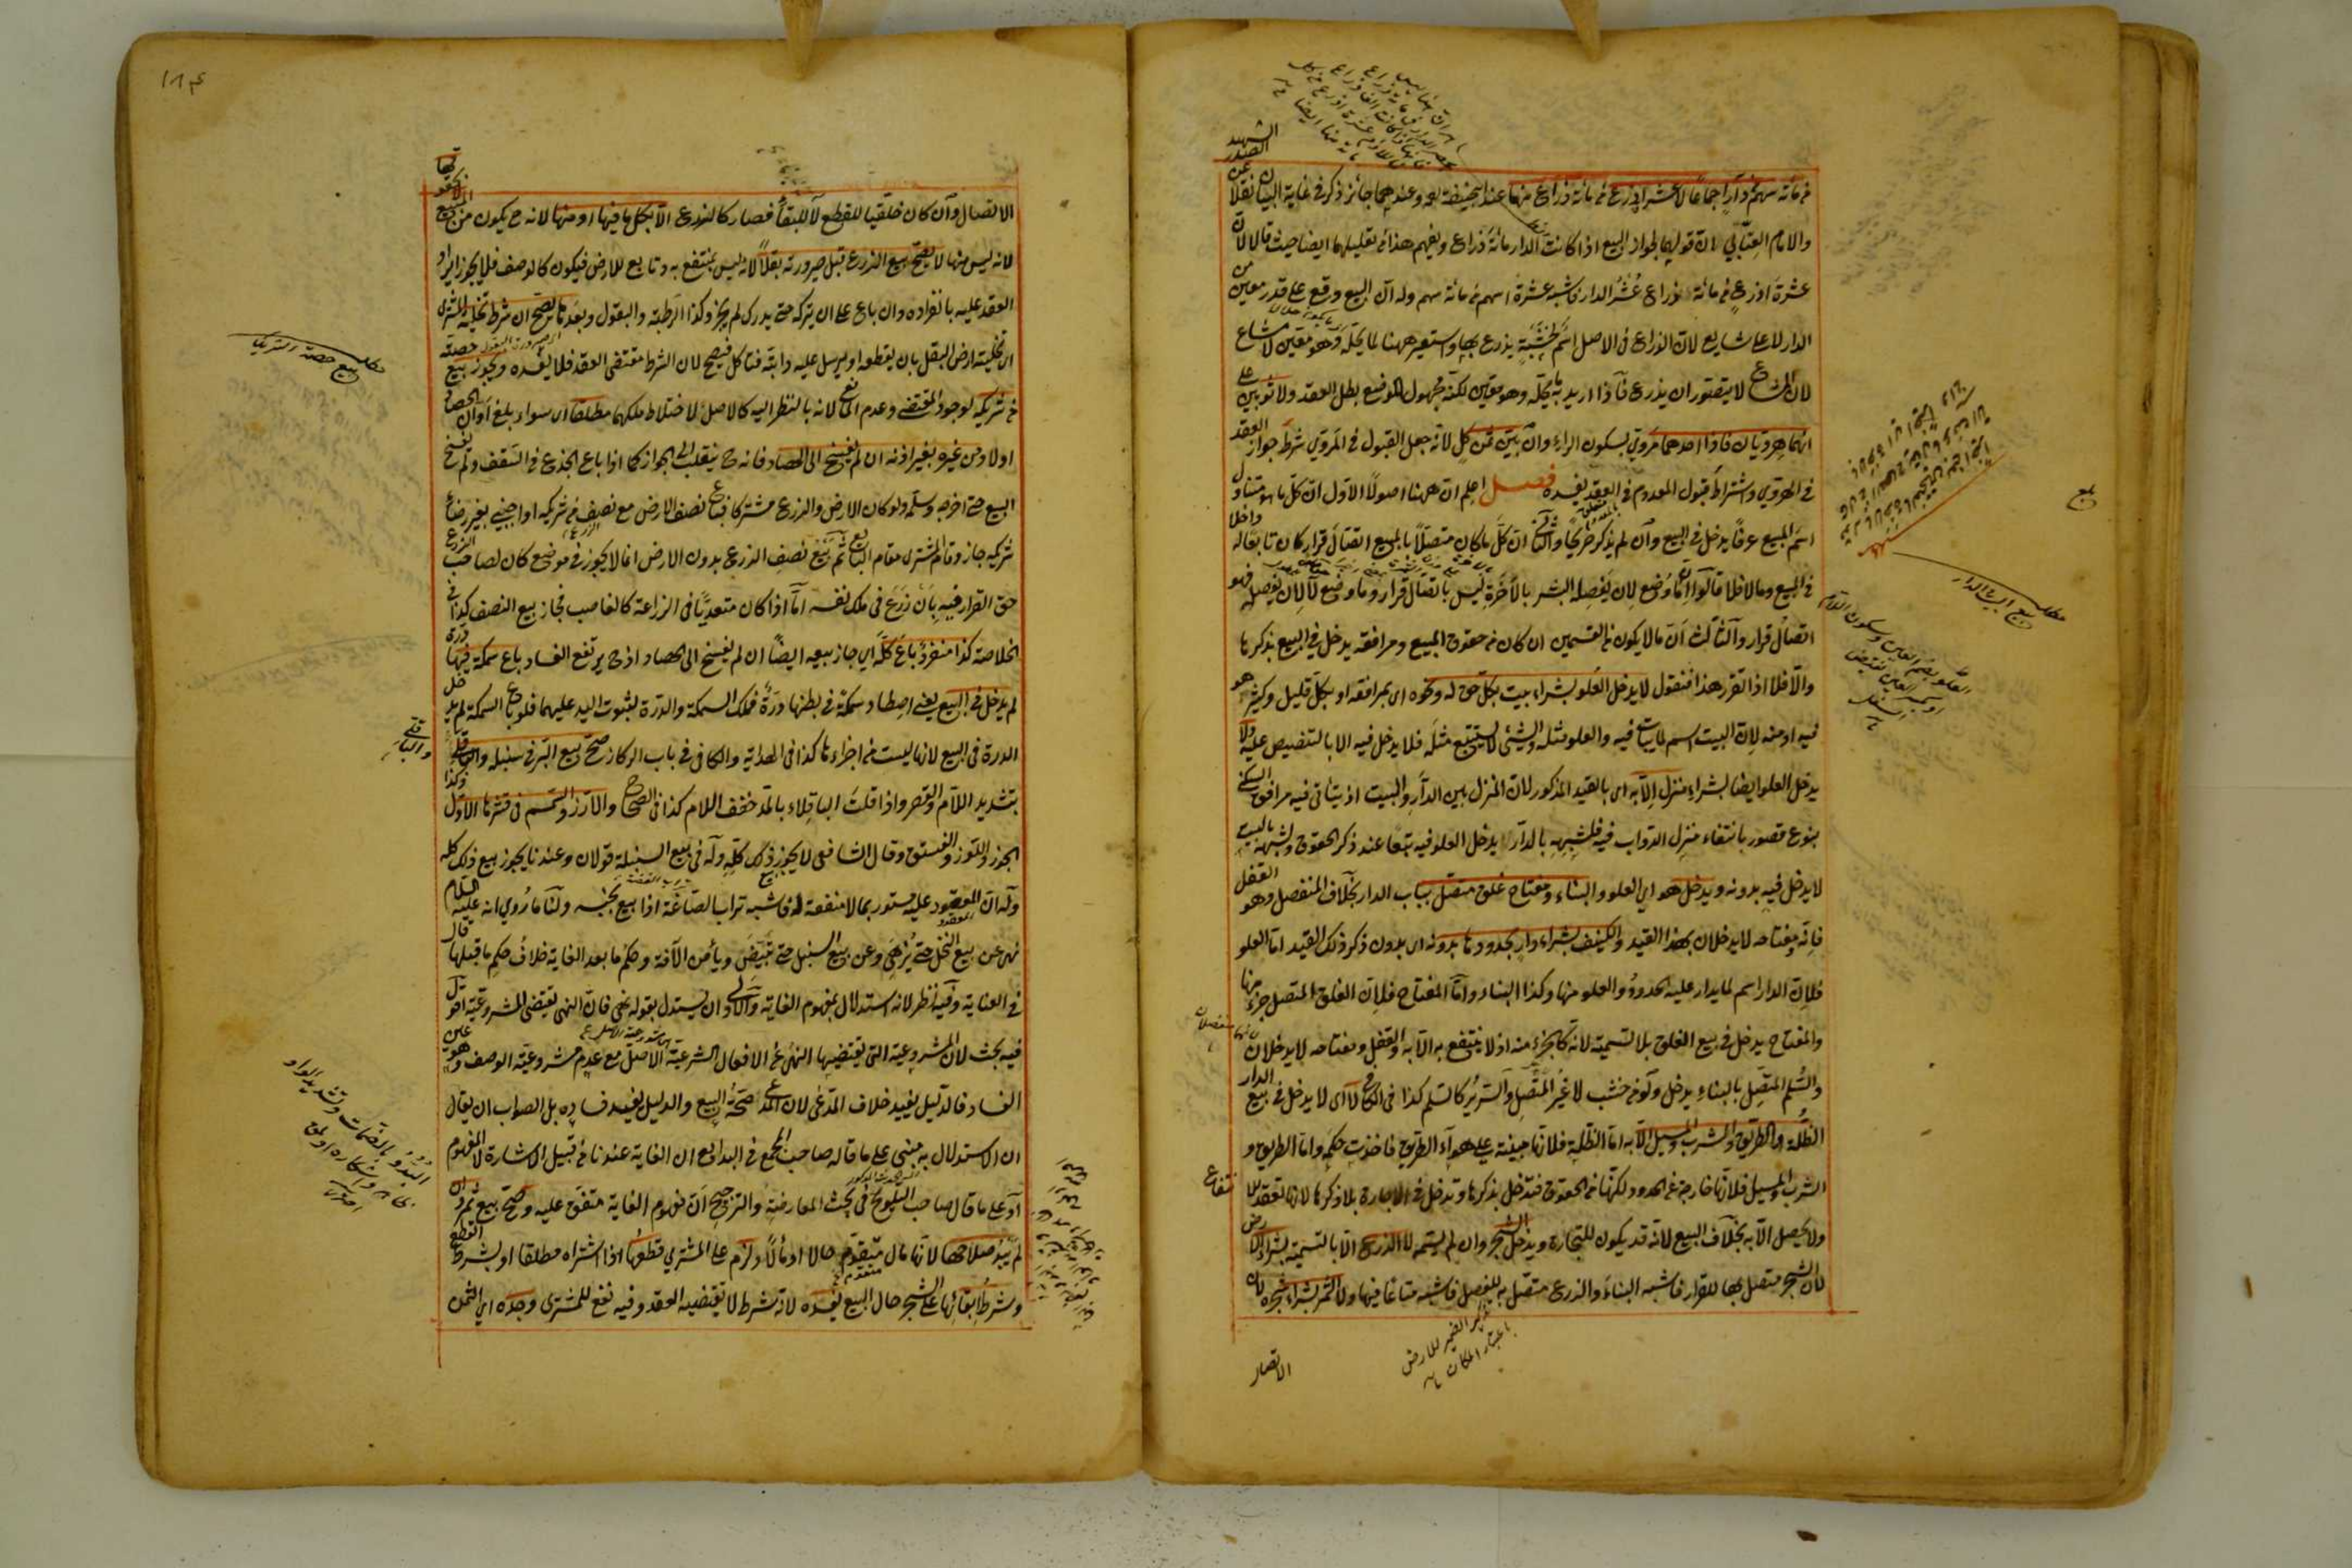 من مائة سهم من دار إجماعا لا عشر أذرع من مائة ذراع منها عند أبي حنيفة رحمه وعندهما جائز ذكر في غاية البيان نقلا عن الصدر الشهيد
والإمام العتابي ان قولهما بجواز البيع اذا كانت الدار مائة ذراع ويفهم هذا من تعليلهما ايضا حيث قالا لان
عشرة اذرع من مائة ذراع عُشر الدار فاشبه عشرة اسهم من مائة سهم وله ان البيع وقع على قدر معين من
الدار لا على شايع لان الذراع في الاصل اسم لخشبة يذرع بها واستعير ههنا لما يحلّه وهو معين لا مشاع
لان المشاع لا يتصور ان يذرع فاذا اريد به ما يحلّه وهو معين لكنه مجهول الموضع بطل العقد ولا ثوبين على
انهما هرويان فاذا احدهما مروي بسكون الراء وان بيّن ثمن كل لانه جعل القبول في المروي شرط جواز العقد
في الهروي واشتراط قبول المعدوم في العقد يفسده فصل اعلم ان ههنا اصولا الاول ان كل ما هو متناول
اسم المبيع عرفا يدخل في البيع وان لم يذكر صريحا والثاني ان كل ما كان متصلا بالمبيع اتصال قرار كان تابعا له داخلا
في المبيع وما لا فلا قالوا ان ما وضع لان يفصله البشر بالآخرة ليس باتصال قرار وما وضع لا لان يفصله فهو
اتصال قرار والثالث ان ما لا يكون من القسمين ان كان من حقوق المبيع ومرافقه يدخل في البيع بذكرها
والا فلا اذا تقرر هذا فنقول لا يدخل العلو بشراء بيت بكل حق له ونحوه اى بمرافقه او بكل قليل وكثير هو
فيه او منه لان البيت اسم لما يبات فيه والعلو مثله والشئ لا يستتبع مثله فلا يدخل فيه الا بالتنصيص عليه ولا
يدخل العلو ايضا بشراء منزل الا به اى بالقيد المذكور لان المنزل بين الدار والبيت اذ يتأتى فيه مرافق السكنى
بنوع قصور بانتفاء منزل الدواب فيه فلشبهه بالدار يدخل العلو فيه تبعا عند ذكر الحقوق ولشبهه بالبيت
لا يدخل فيه بدونه ويدخل هو اي العلو والبناء ومفتاح غلق متصل بباب الدار بخلاف المنفصل وهو القفل
فانه ومفتاحه لا يدخلان بهذا القيد والكنيف بشراء دار بحدودها بدونه اى بدون ذكر ذلك القيد اما العلو
فلان الدار اسم لما يدار عليه الحدود والعلو منها وكذا البناء واما المفتاح فلان الغلق المتصل جزء منها
والمفتاح يدخل في بيع الغلق بلا تسمية لانه كالجزء منه اذ لا ينتفع به الا به والقفل ومفتاحه لا يدخلان
والسلم المتصل بالبناء يدخل ولو من خشب لا غير المتصل والسرير كالسلم كذا في الكافي لا اى لا يدخل في بيع الدار
الظلة والطريق والشرب والمسيل الا به اما الظلة فلانها مبنية على هواء الطريق فاخذت حكمه واما الطريق و
الشرب والمسيل فلانها خارجة عن الحدود لكنها من الحقوق فتدخل بذكرها وتدخل في الاجارة بلا ذكرها لانها تعقد للانتفاع
ولا يحصل الا به بخلاف البيع لانه قد يكون للتجارة ويدخل الشجر وان لم يسمه لا الزرع الا بالتسمية بشراء الارض
لان الشجر متصل بها للقرار فاشبه البناء والزرع متصل به للفصل فاشبه متاعا فيها ولا الثمر بشراء شجره لان
الاتصال
العلو بضم العين وسكون اللام
او بكسر العين نقيض
السفل
مطلب بيع البيت والدار
تذكير الضمير للارض
باعتبار المكان
١٨٤
الاتصال وان كان خلقيا للقطع لا للبقاء فصار كالزرع الا بكل ما فيها او منها لانه ح يكون من المبيع
لانه ليس منها لا يصح بيع الزرع قبل صيرورته بقلا لانه ليس بمنتفع به وتابع للارض فيكون كالوصف فلا يجوز ايراد
العقد عليه بانفراده وان باع على ان يتركه حتى يدرك لم يجز وكذا الرطبة والبقول وبعدها يصح ان شرط تخلية المشترى
اى تخلية ارض البقل بان يقطعه او يرسل عليه دابته فتأكل فيصح لان الشرط مقتضى العقد فلا يفسده ويجوز بيع حصته
من شريكه لوجود المقتضى وعدم المانع لانه بالنظر اليه كالاصل لاختلاط ملكهما مطلقا اى سواء بلغ اوان الحصاد
اولا ومن غيره بغير اذنه ان لم يفسخ الى الحصاد فانه ح ينقلب الى الجواز كما اذا باع الجذع في السقف ولم يفسخ
البيع حتى اخرجه وسلّمه ولو كان الارض والزرع مشتركا فباع نصف الارض مع نصف الزرع من شريكه او اجنبي بغير رضاء
شريكه جاز وقام المشترى مقام البائع ثم بيع نصف الزرع بدون الارض انما لا يجوز في موضع كان لصاحب الزرع
حق القرار فيه بان زرع في ملك نفسه اما اذا كان متعديا في الزراعة كالغاصب فجاز بيع النصف كذا في
الخلاصة كذا منفردا باع كله اي جاز بيعه ايضا ان لم يفسخ الى الحصاد اذ ح يرتفع الفساد باع سمكة فيها درة
لم يدخل في البيع يعني اصطاد سمكة في بطنها درة فملك السمكة والدرة لثبوت اليد عليهما فلو باع السمكة لم يدخل
الدرة في البيع لانها ليست من اجزاءها كذا في الهداية والكافي في باب الركاز صح بيع البر في سنبله والباقلي
بتشديد اللام والقصر واذا قلت الباقلاء بالمد خفف اللام كذا في الصحاح والارز والسمسم في قشرها الاول وكذا
الجوز واللوز والفستق وقال الشافعي لا يجوز ذلك كله وله في بيع السنبلة قولان وعندنا يجوز بيع ذلك كله
وله ان المعقود عليه مستور بما لا منفعة له فاشبه تراب الصاغة اذا بيع بجنسه ولنا ما روي انه عليه السلام
نهى عن بيع النخل حتى يُزهي وعن بيع السنبل حتى تبيض ويأمن الآفة وحكم ما بعد الغاية خلاف حكم ما قبلها قال
في العناية وفيه نظر لانه استدلال بمفهوم الغاية والاولى ان يستدل بقوله نهى فان النهي يقتضى المشروعية اقول
فيه بحث لان المشروعية التى يقتضيها النهي عن الافعال الشرعية الاصل مع عدم مشروعية الوصف وهو عين
الفساد فالدليل يفيد خلاف المدعى لان المدعى صحة البيع والدليل يفيد فساده بل الصواب ان يقال
ان الاستدلال به مبني على ما قاله صاحب المجمع في البدايع ان الغاية عندنا من قبيل الاشارة لا المفهوم
او على ما قال صاحب التلويح في بحث المعارضة والترجيح ان مفهوم الغاية متفق عليه وصح بيع ثمرة
لم يبد صلاحها لانها مال متقوم حالا او مآلا ولزم على المشتري قطعها اذا اشتراه مطلقا او بشرط القطع
وشرط ابقائها على الشجر حال البيع يفسده لانه شرط لا يقتضيه العقد وفيه نفع للمشترى وحده اي الثمن
مطلب بيع حصة الشريك
والباقلي
البدو بالضمات وتشديد الواو